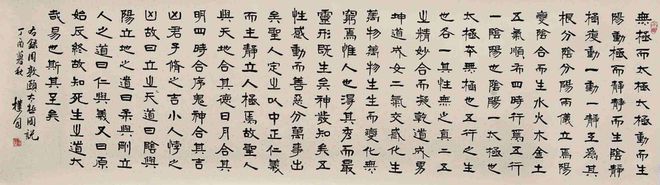 無極而太極太極動而生
陽動極而靜靜而生陰靜
極復動一動一靜互為其
根分陰分陽兩儀立焉陽
變陰合而生水火木金土
五氣順布四時行焉五行
一陰陽也陰陽一太極也
也各一其性無之真二五
之精妙合而凝乾道成男
坤道成女二氣交感化生
萬物萬物生生而變化無
窮焉惟人也得其秀而最
靈形既生矣神發知矣五
性感動而善惡分萬事出
矣聖人定之以中正仁義
而主靜立人極焉故聖人
與天地合其德日月合其
明四時合序鬼神合其吉
凶君子修之吉小人悖之
凶故曰立天之道曰陰與
陽立地之道曰柔與剛立
人之道曰仁與義又曰原
始反終故知死生之道大
哉易也斯其至矣
右錄周敦頤太極圖說
丁酉暮秋